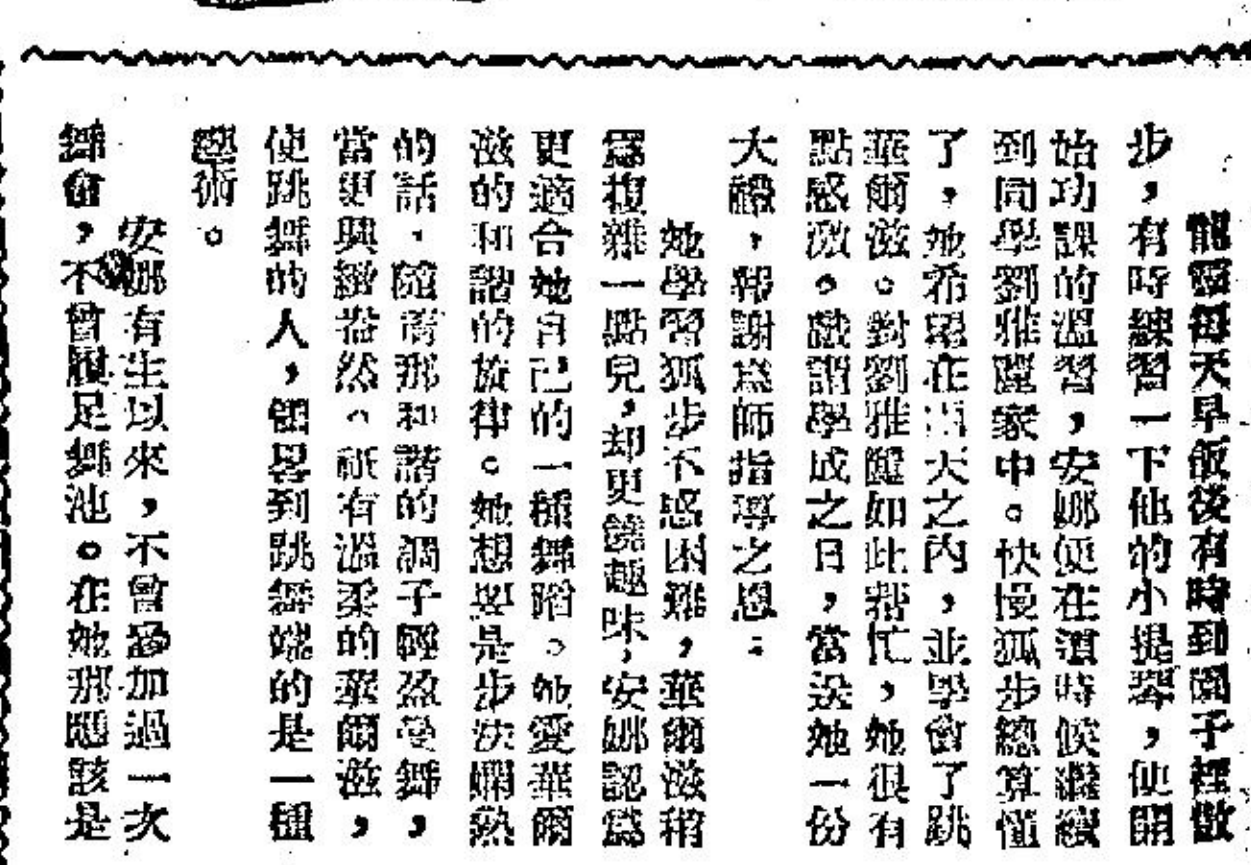 龍靈每天早飯後有時到園子裡散
步，有時練習一下他的小提琴，便開
始功課的溫習，安娜便在這時候繼續
到同學劉雅麗家中。快慢狐步總算懂
了，她希望在兩天之內，並學會了跳
華爾滋。對劉雅麗如此幫忙，她很有
點感激。戲謂學成之日，當送她一份
大禮，報謝爲師指導之恩。
她學習狐步不感困難，華爾滋稍
爲複雜一點兒，却更饒趣味，安娜認爲
更適合她自己的一種舞蹈。她愛華爾
滋的和諧的旋律。她想要是步法嫻熟
的話，隨着那和諧的調子輕盈曼舞，
當更興緻盎然。祇有溫柔的華爾滋，
使跳舞的人，領畧到跳舞端的是一種
藝術。
安娜有生以來，不曾參加過一次
舞會，不曾履足舞池。在她那應該是